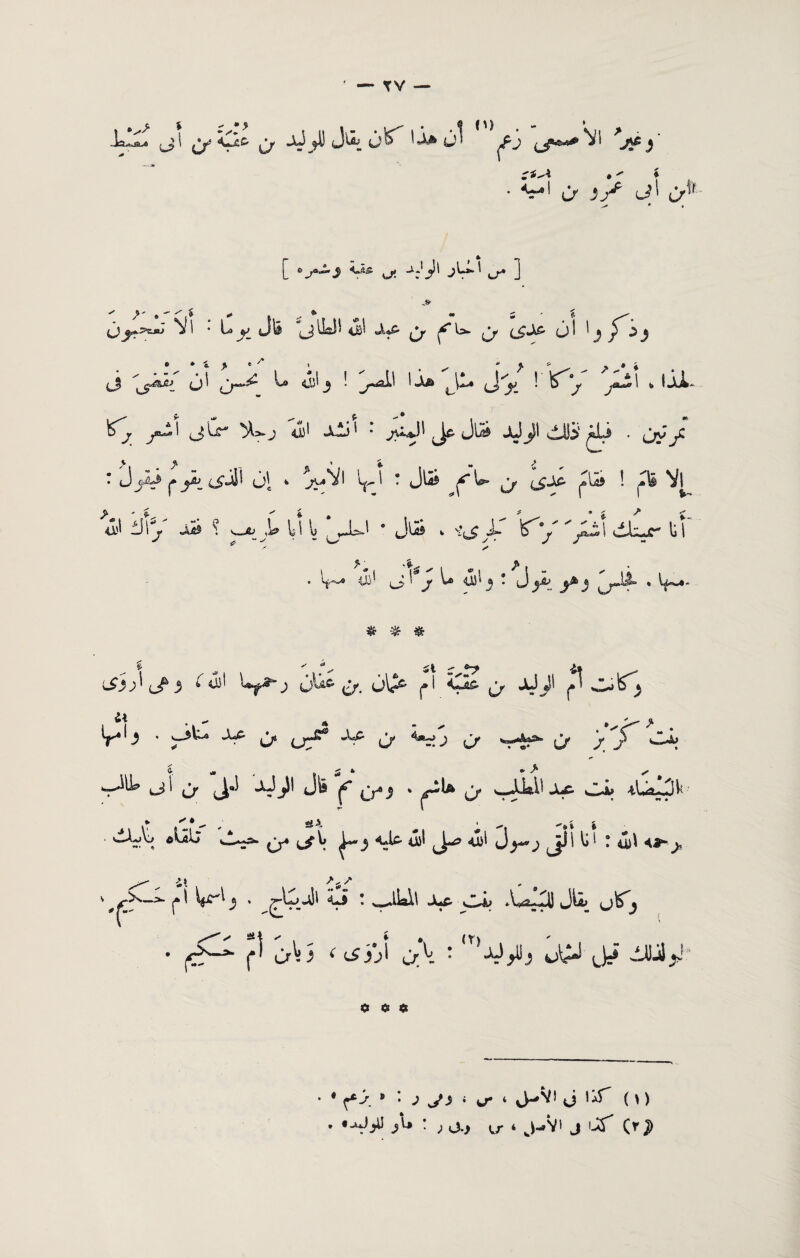 — ٢٧ —
وغيرُ الأصمعيّ زعم (١) أن هذا كان يقال للوليد بن عُقْبَة بن أبى مُعَيْط
ابن أبى عَمْرو بن أميّة .
[ من أخبار الوليد بن عقبة وشعره ]
وذكروا أن عَدىّ بن حاتم بن عبد الله الطائىّ قال يومًا : ألَا تَعْجَبُون
لهذا ، أَشْعَرَ بَرْكًا ! يُولَّى مثلُ هذا المصرَ ! والله ما يُحْسِن أن يَقْضِىَ فى
تَمْرتين . فبلغ ذلك الوليدَ فقال على المنبر : أَنْشُد اللهَ رجلًا سمّانى أشعر بركًا
إلّا قام ! فقام عَدىّ بن حاتم فقال : أيّها الأميرُ ، إن الذى يقوم فيقول :
أنا سميتك أَشْعَرَ بَرْكًا لجرىءٌ ، فقال : اجلِسْ يا أبا طريف ؟ فقد برَّأك اللهُ
منها . فجلس وهو يقول : والله ما برّأنى اللهُ منها .
* * *
وكانت أُمُّ الوليد بن عُقْبَة أمَّ عثمان بن عفّان رحمها الله ، وهى أَرْوَى
بنت كُرَيْز بن حبيب بن ربيعة بن عبد شمس بن عبد مناف . وأُمّها
البَيْضاء بنت عبد المطلب بن هاشم . ومن ثَمّ قال الوليد لعلىّ بن أبى طالب
رحمه الله : أنا أَلْقَى رسول الله صلى الله عليه وسلم بأمّى من حيث تلقاه بأبيك .
وكان يقال للبَيْضاء بنت عبد المطلب : قُبّة الديباج . واسمها أُمّ حَكِيم ،
لذلك قيل لعثمان وللوليد (٢) : يابن أَرْوَى ، ويابن أُمّ حَكيم .
* * *
(١) كذا فى الأصل ، س ؛ وفى ر : « يزعم » .
(٢) كذا فى الأصل ، س وفى ر : « أو للوليد » .